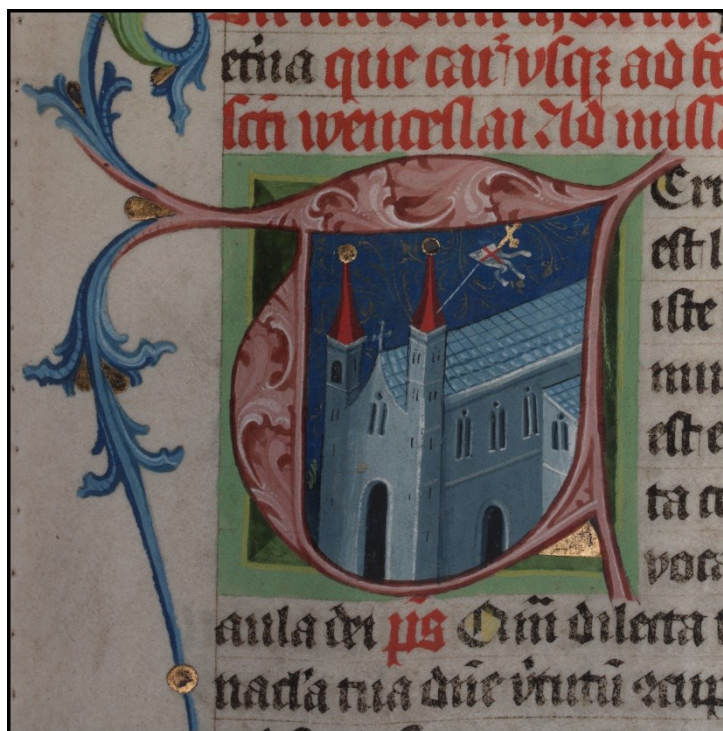 et'na que cat' vsqꝫ ad fe
scti wenceslai Ad miss
TErri
est l
iste
est e
ta c
voca
aula dei ps Qm̄ dilecta t
nac̄la tua dn̄e v'tutū